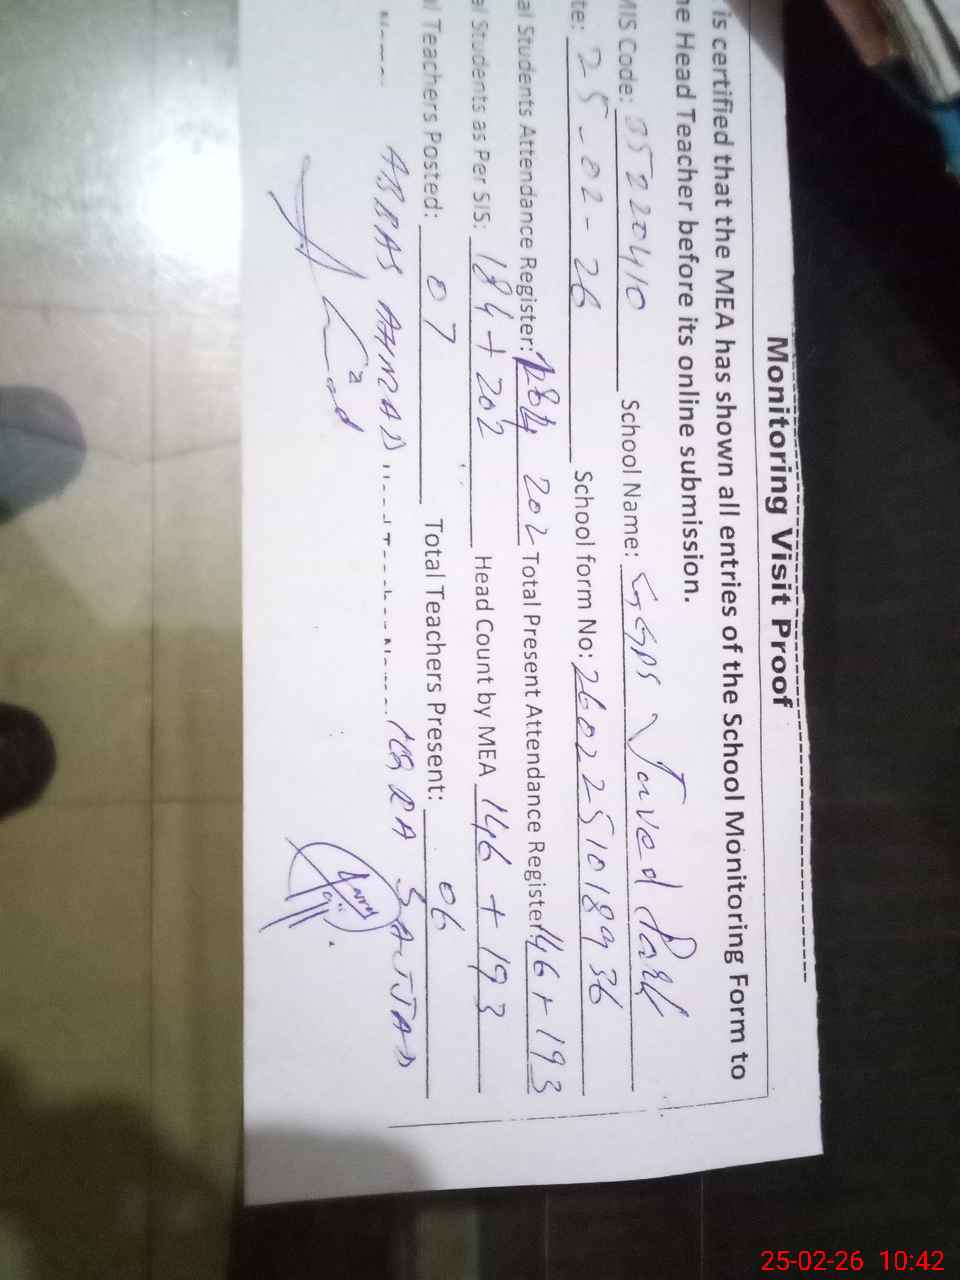 Monitoring Visit Proof
is certified that the MEA has shown all entries of the School Monitoring Form to
he Head Teacher before its online submission.
MIS Code: 35220410 School Name: GGPS Javed Park
te: 25-02-26 School form No: 2602251018936
al Students Attendance Register: 184 202 Total Present Attendance Register: 146 + 193
al Students as Per SIS: 184 + 202 Head Count by MEA 146 + 193
al Teachers Posted: 07 Total Teachers Present: 06
ABBAS AHMAD IQRA SAJJAD
25-02-26 10:42